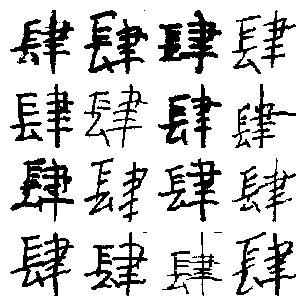 肆肆肆肆
肆肆肆肆
肆肆肆肆
肆肆肆肆